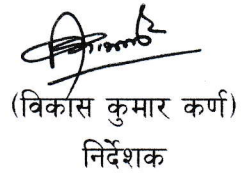 (विकास कुमार कर्ण)
निर्देशक